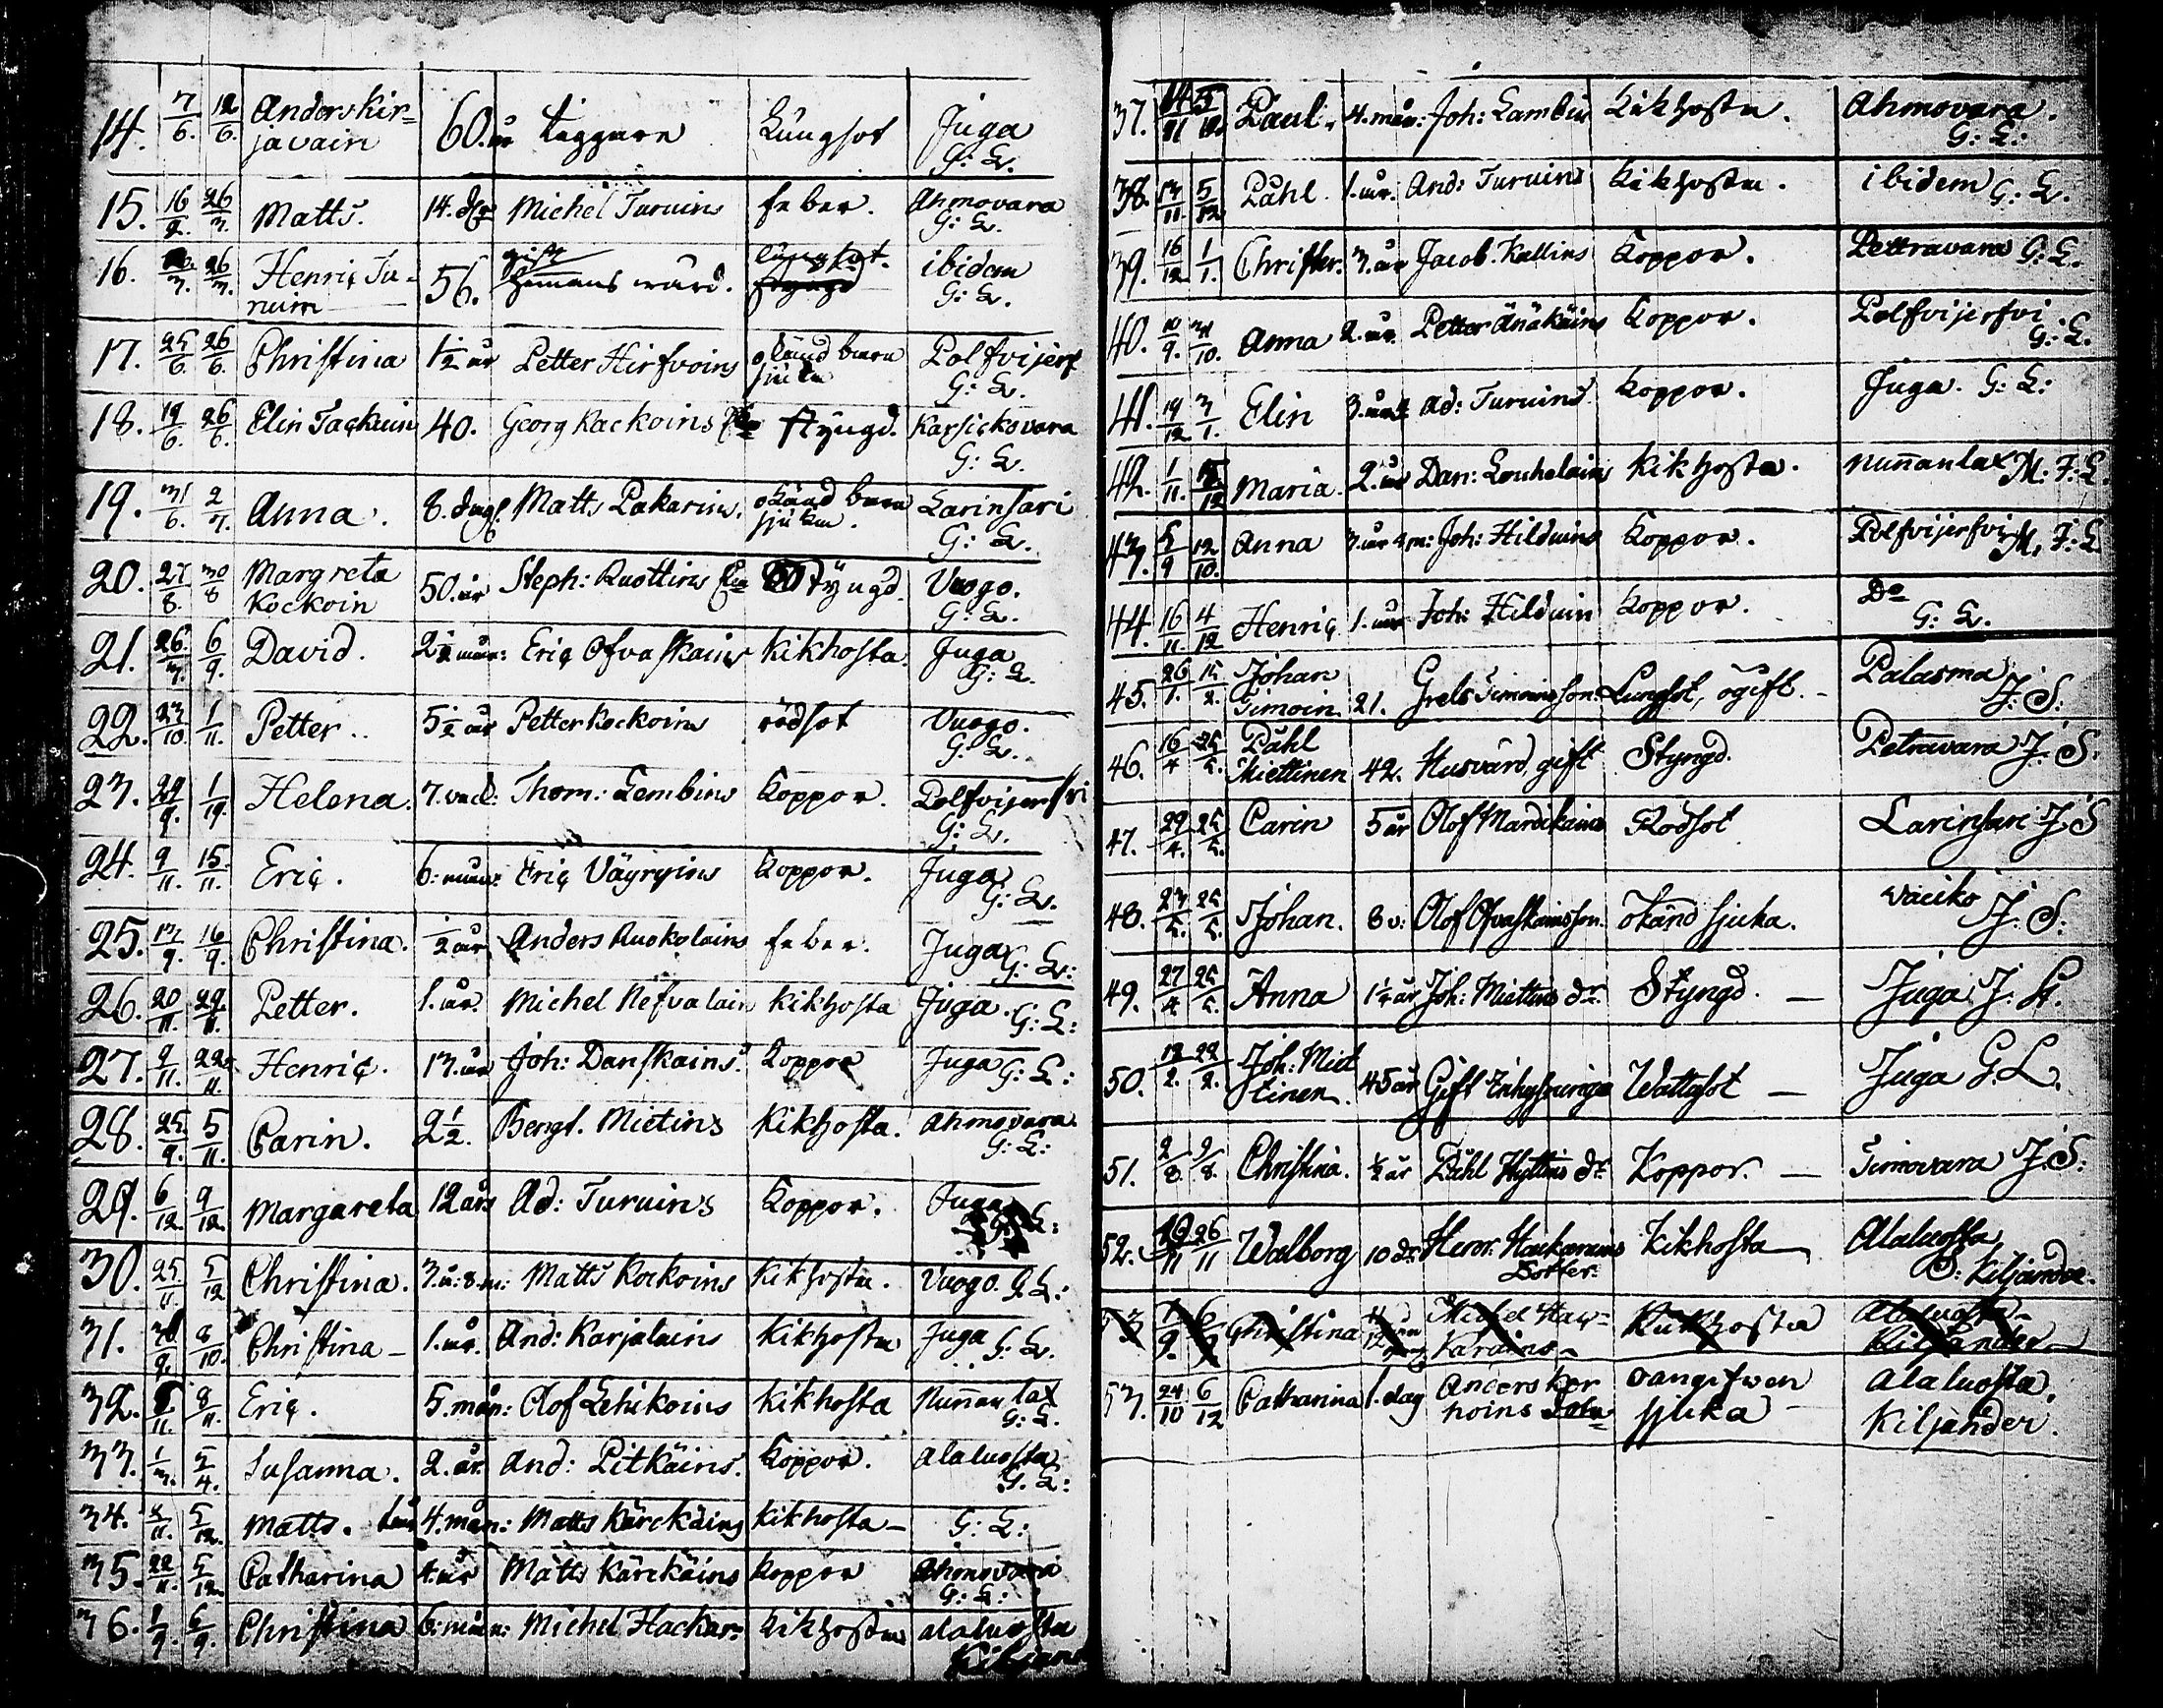 14. 7/6. 12/6. Anderskir=javain 60. år tiggare Lungsot Juga G: L.
15. 16/2. 26/3. Matts. 14. dgr Michel Turuins feber. Ahmovara G: L.
16. 26/3. Henric Turuin 56. gift hemans värd. lungsot. ibidem G: L.
17. 25/6. 26/6. Christina 1 1/2 år Petter Hirfvoins okänd barn sjuka Polfvijerf G: L.
18. 19/6. 26/6. Elin Tackuin 40. Georg Kackoins styngd. Karsickovara G: L.
19. 31/6. 2/7. Anna. 8. dag. Matts Pakarins. okänd barn sjukm. Larinsari G: L.
20. 27/8. 30/8 Margreta Kockoin 50. år Steph: Ruottins styngd. Vuogo. G: L.
21. 26./7. 6/9. David. 2 1/2 mån: Eric Ofvaskains Kikhosta. Juga G: L.
22. 23/10. 1/11. Petter.. 5 1/2 år Petter Kockoins rödsot Vuogo. G: L.
23. Helena. 7. veck: Thom: Lembins Koppor. Polfvijerfvi G: L.
24. 9/11. 15./11. Eric. 6: mån: Eric Väyryins Koppor. Juga G: L.
25. 13/9. 16/9. Christina. 1/2 år Anders Ruokolains feber. Juga G: L:
26. 20/11. 29./11. Petter. 1. år. Michel Nefvalain Kikhosta Juga. G: L:
27. 9/11. 22/11. Henric. 13. år Joh: Danskains. Koppor Juga G: L:
28. 25./9. 5/11. Carin. 2 1/2. Bengt. Mietins Kikhosta. Ahmovara. G: L:
29. 6/12. 9/12. Margareta 12 års Ad: Turuins Koppor. Juga G: L:
30. 25./11. 5/12 Christina. 3. å: 8. m: Matts Kockoins Kikhosta. Vuogo. G: L:
31. 9/10. Christina - 1. år. And: Karjalains Kikhosta Juga G: L.
32. 8/11. Eric. 5. mån: Olof Lehikoins Kikhosta Nunnanlax G: L.
33. 1/3. 5/4. Susanna. 2. år. And: Pitkäins. Koppor. Alaluosta G: L:
34. 5/12. Matts. 4. mån: Matts Kärckäins Kikhosta - G: L:
35. 22/11. 5/12. Catharina 4. år Matts Kärckäins Koppor Ahmovara G: L:
36. 1/9. 6/9. Christina 6: mån: Michel Hackar: Kikhosta alaluosta Kiljand
37. 14/11 5/12. Paul. 4. mån: Joh: Lambin Kikhosta. Ahmovara. G: L:
38. 13/11. 5/12 Påhl. 1. år. And: Turuins Kikhosta. ibidem G: L.
39. 16/12 1/1. Christer. 3. år Jacob. Kallins Koppor. Pettravara G: L.
40. 10/9. 31/10. Anna 2. år. Petter Änäkäins Koppor. Polfvijerfvi G: L.
41. 19/12 3/1. Elin 3. år Ad: Turuins Koppor. Juga. G: L:
42. 1/11. 15/12 Maria. 2. år Dan: Louhelains Kikhosta. Nunnanlax M. F: L.
43. 5/9 12/10. Anna 3. år 4 m: Joh: Hilduins Koppor. Polfvijerfvi M. F: L
44. 16/11. 4/12 Henric 1. år Joh: Hilduin Koppor. Do G: L.
45. 26/1. 15/2. Johan Simoin 21. Grels Simoins son. Lungsot, ogift. - Palasma J: S:
46. 16/4 25/5. Påhl Miettinen 42. Husvärd gift Styngd. Petravara J: S.
47. 29/4. 25/5. Carin 5 år Olof Mardikains Rödsot Larinsari J: S
48. 23/5. 25/5. Johan. 8 v: Olof Ofvaskains son. okänd sjuka. Vaciko J: S:
49. 27/4 25/5. Anna 1 1/4 år Joh: Miettins dr. Styngd. - Juga J: S.
50. 12/2. 22/2. Joh: Miettinen. 45 år Gift Inhysninge Wattusot - Juga G. L.
51. 2/8 9/8. Christina. 1/2 år Påhl Hyttins dr. Koppor. - Timovara J. S:
52. 19/11 26/11 Walborg 10 dr. Henr: Haukarains Dotter. Kikhosta - Alaluosta D: Kiljander.
53 1/9. 6/9 Christina Michel Hackarains - Kikhosta Alaluosta - Kiljander
53. 24/10 6/12 Catharina 1. dag Anders Korhoins Dotr oangifven sjuka - alaluosta. Kiljander.